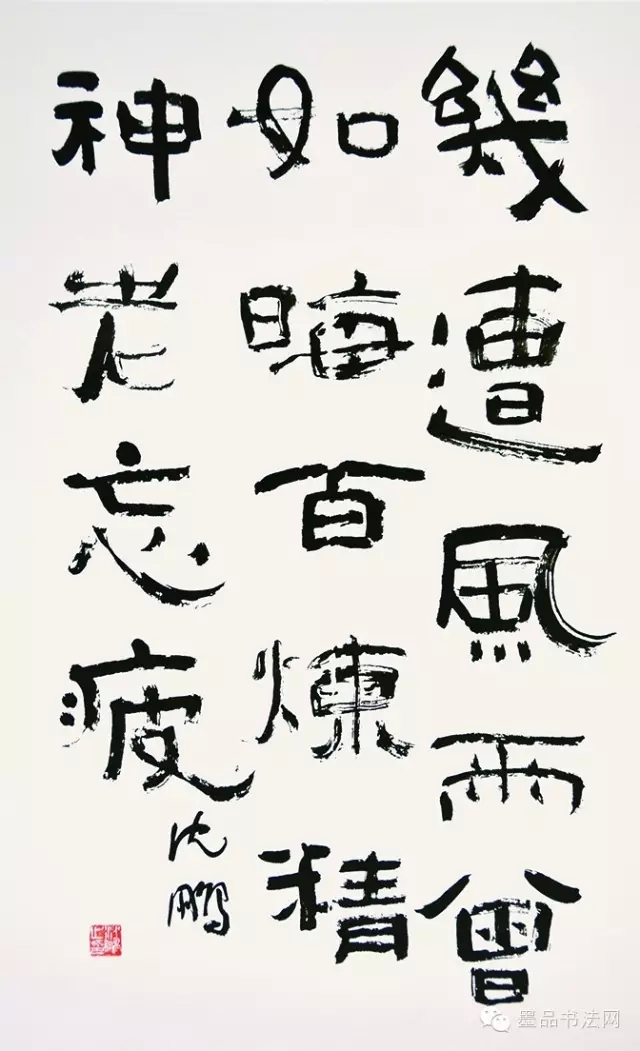 幾遭風雨曾
如晦百煉精
神老忘疲
沈鵬
墨品书法网